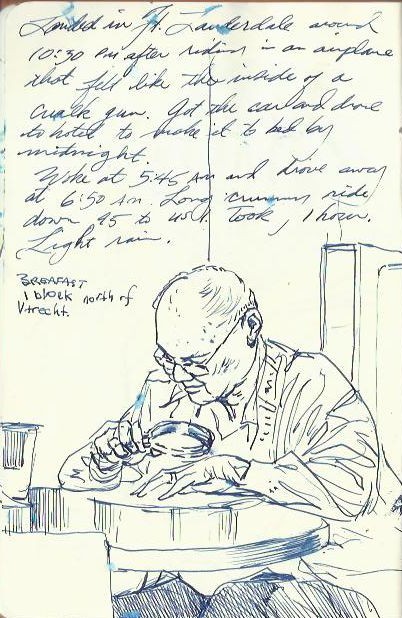 Landed in Ft. Lauderdale around
10:30 PM after riding in an airplane
that felt like the inside of a
caulk gun. Got the car and drove
to hotel to make it to bed by
midnight.
Woke at 5:45 AM and drove away
at 6:50 AM. Long crummy ride
down 95 to US 1. Took, 1 hour.
Light rain.
BREAFAST
1 block north of
Utrecht.